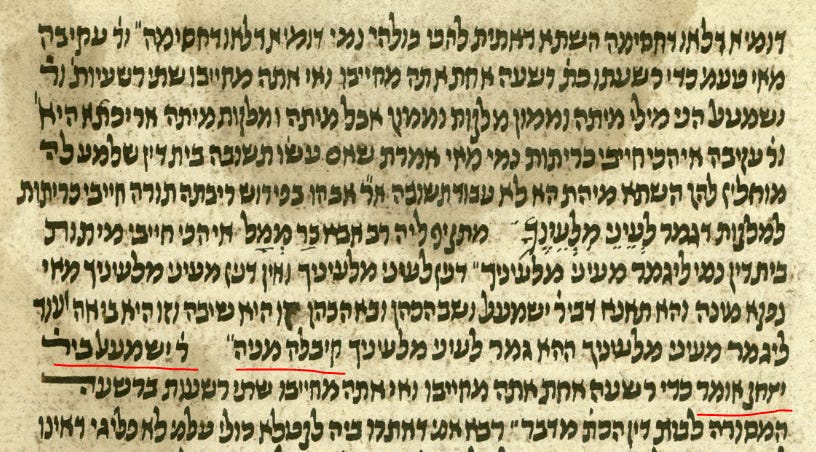 דומיא דלאו דחסימה השתא דאתית להכי כולהי נמי דומיא דלאו דחסימה" ור' עקיבה
מאי טעמ' כדי רשעתו כת' רשעה אחת אתה מחייבו ואי אתה מחייבו שתי רשעיות ור'
ישמעאל הני מילי מיתה וממון מלקות וממון אבל מיתה ומלקות מיתה אריכתא היא'
ור' עקיבה אי הכי חייבי כריתות נמי מאי אמרת שאם עשו תשובה בית דין שלמעלה
מוחלין להן השתא מיהת הא לא עבוד תשובה א"ר אבהו בפירוש ריבתה תורה חייבי כריתות
למלקות דגמר לעיני מלעיניך" מתקיף ליה רב אבא בר ממל אי הכי חייבי מיתות
בית דין נמי ליגמר מעיני מלעיניך" דנין לעיני מלעיניך ואין דנין מעיני מלעיניך מאי
נפקא מינה והא תאנא דבי ר' ישמעאל ושב הכהן ובא הכהן זו היא שיבה וזו היא בואה ועוד
ליגמר מעיני מלעיניך ההא גמר לעיני מלעיניך קיבלה מניה" ר' ישמעאל ביר'
יצחק אומר כדי רשעה אחת אתה מחייבו ואי אתה מחייבו שתי רשעות ברשעה
המסורה לבית דין הכת' מדבר" רבא אמ' דאתרו ביה לקטלא כולי עלמ' לא פליגי דאינו